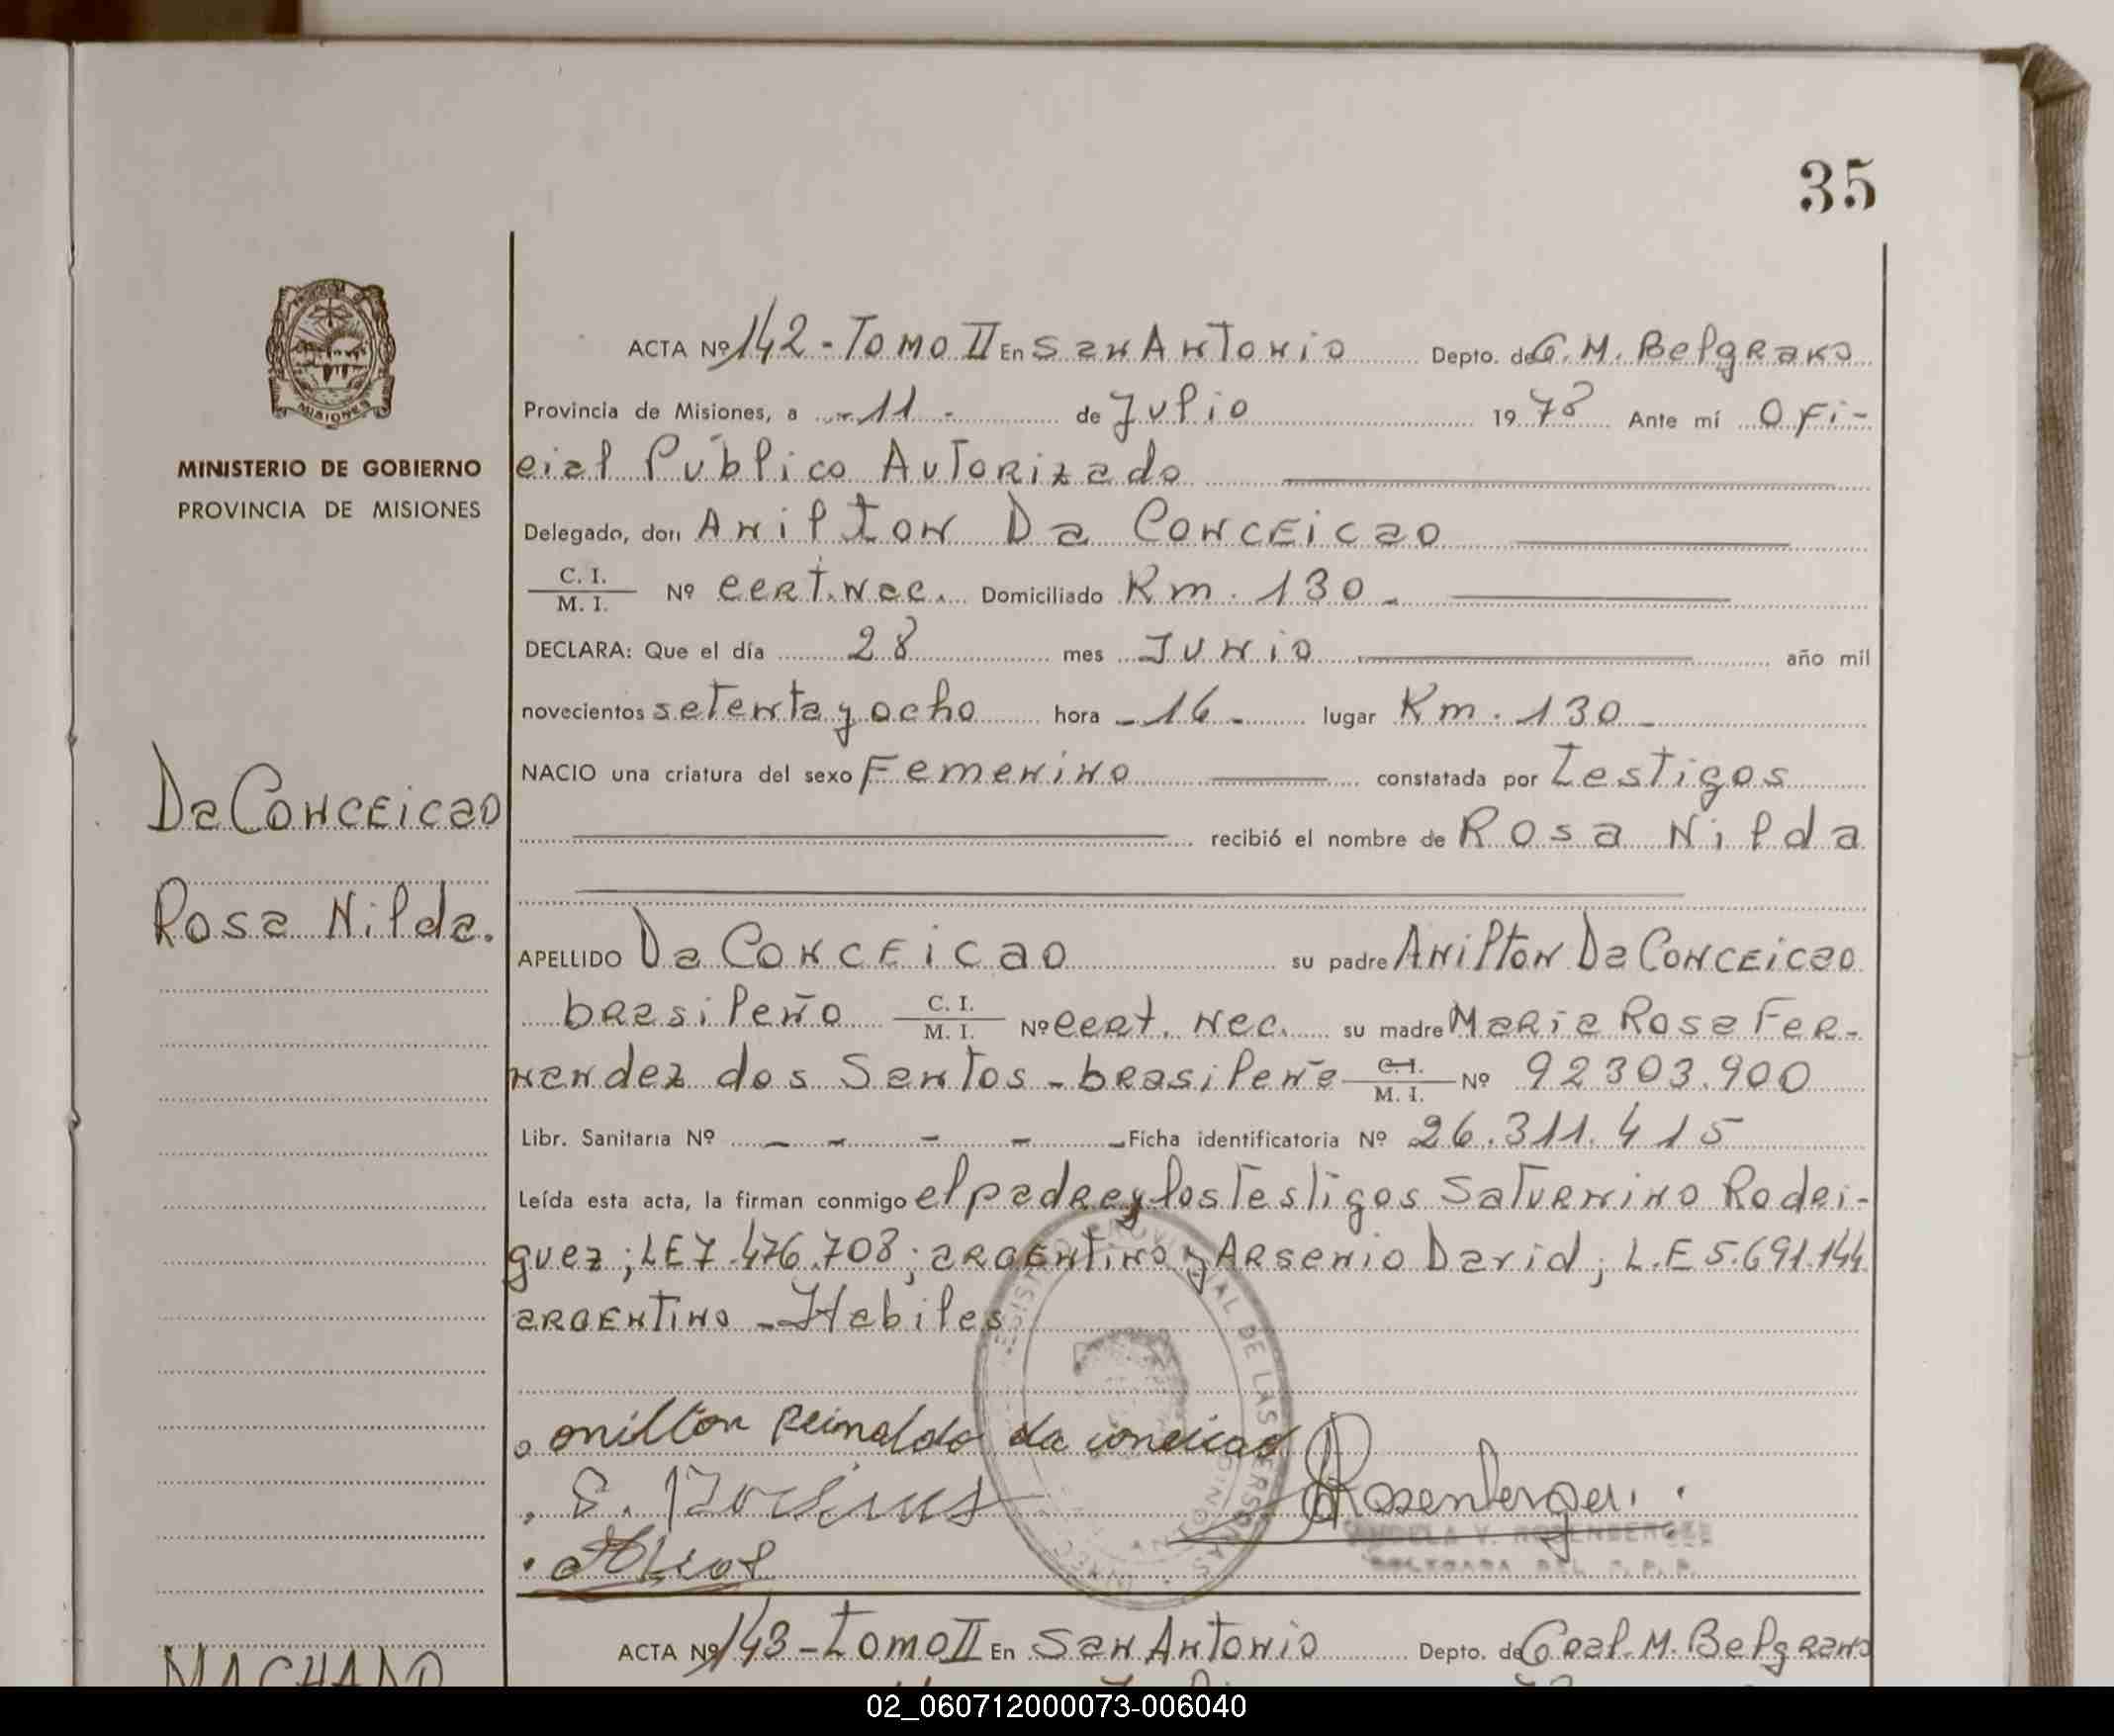 35
MISIONES
MINISTERIO DE GOBIERNO
PROVINCIA DE MISIONES
Da Conceicao
Rosa Nilda.
ACTA Nº 142 - Tomo II En San Antonio Depto. de G. M. Belgrano
Provincia de Misiones, a - 11 - de Julio 1978 Ante mí Ofi-
cial Público Autorizado
Delegado, don Anilton Da Conceicao
C. I. / M. I. Nº cert. Nac. Domiciliado Km. 130 -
DECLARA: Que el día 28 mes Junio año mil
novecientos setenta y ocho hora - 16 - lugar Km. 130 -
NACIO una criatura del sexo Femenino constatada por Testigos
recibió el nombre de Rosa Nilda
APELLIDO Da Conceicao su padre Anilton Da Conceicao
brasileño C. I. / M. I. Nº cert. Nac. su madre Maria Rosa Fer-
nandez dos Santos - brasileña C. I. / M. I. Nº 92303.900
Libr. Sanitaria Nº - - - - - Ficha identificatoria Nº 26.311.415
Leída esta acta, la firman conmigo el padre y los Testigos Saturnino Rodri-
guez; LE 7.476.708; argentino y Arsenio David; L.E 5.691.144
argentino - Habiles
onilton Reinaldo da conceicao
Rosenberger.
ANGELA V. ROSENBERGER
REGISTRO PROVINCIAL DE LAS PERSONAS
ACTA Nº 143 - Tomo II En San Antonio Depto. de Gral. M. Belgrano
MACHADO
02_060712000073-006040